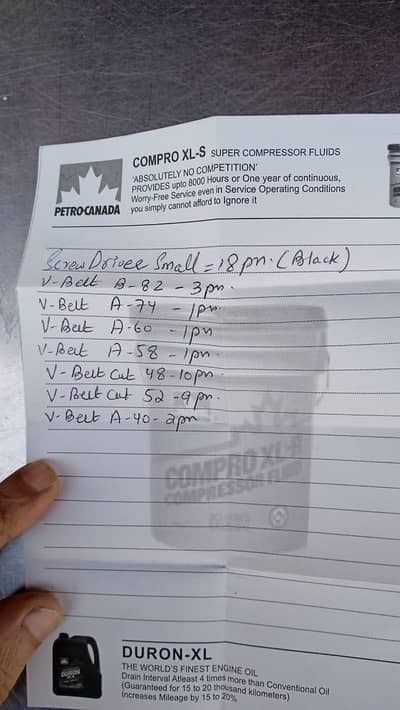 COMPRO XL-S SUPER COMPRESSOR FLUIDS
'ABSOLUTELY NO COMPETITION'
PROVIDES upto 8000 Hours or One year of continuous,
Worry-Free Service even in Service Operating Conditions
you simply cannot afford to Ignore it
PETRO-CANADA
Screw Driver Small = 18 pn. (Black)
V-Belt B-82 - 3pn.
V-Belt A-74 - 1pn.
V-Belt A-60 - 1pn
V-Belt A-58 - 1pn.
V-Belt Cut 48-10pn.
V-Belt Cut 52-9pn.
V-Belt A-40-2pn
COMPRO XL-S
COMPRESSOR FLUID
DURON-XL
THE WORLD'S FINEST ENGINE OIL
Drain Interval Atleast 4 times more than Conventional Oil
(Guaranteed for 15 to 20 thousand kilometers)
Increases Mileage by 15 to 20%
DURON